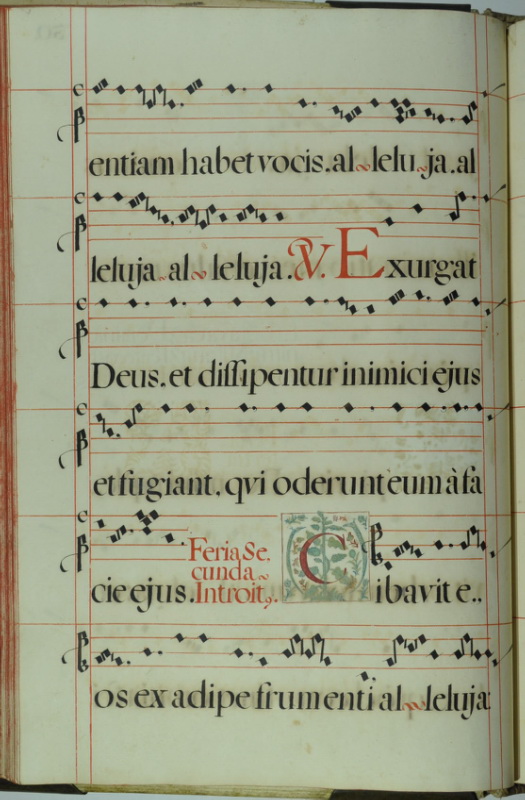 entiam habet vocis. al~lelu~ja. al
leluja~al~leluja. V. Exurgat
Deus. et dissipentur inimici ejus
et fugiant. qvi oderunt eum à fa
cie ejus. Feria Se,
cunda~
Introit9. Cibavit e..
os ex adipe frumenti al~leluja: